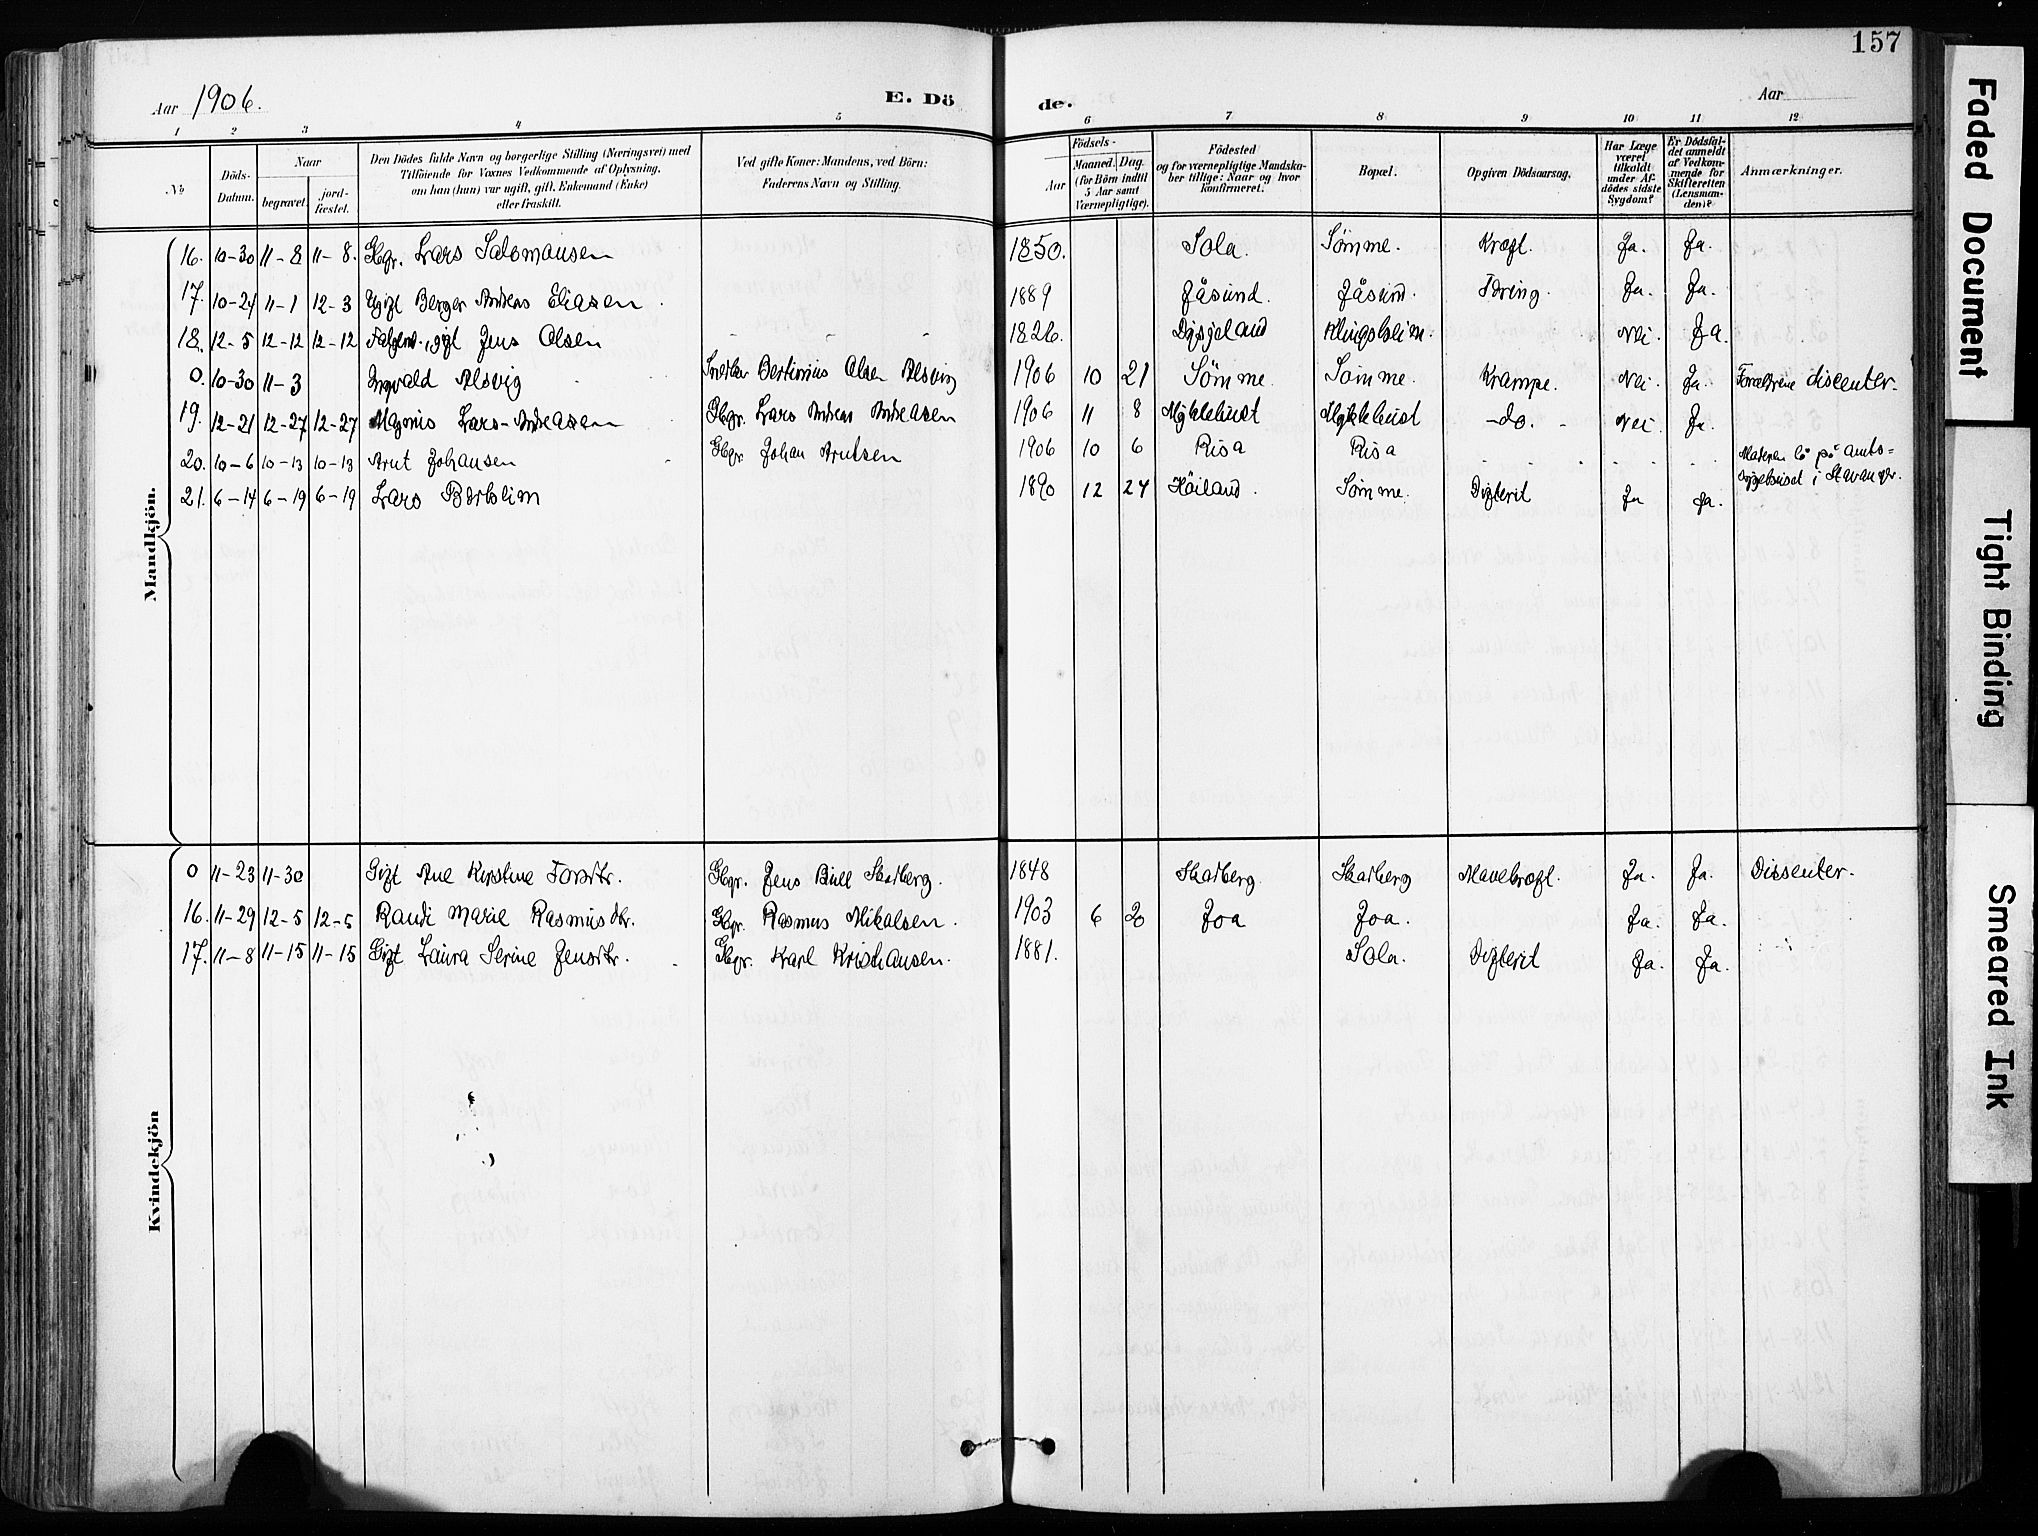 157
Aar 1906.
E. Dö
de.
Aar
1 2 3 4 5 6 7 8 9 10 11 12
No
Döds-Datum.
Naar
begravet.
jord-fæstet.
Den Dödes fulde Navn og borgerlige Stilling (Næringsvei) med
Tilföiende for Voxnes Vedkommende af Oplysning,
om han (hun) var ugift, gift, Enkemand (Enke)
eller fraskilt.
Ved gifte Koner: Mandens, ved Börn:
Faderens Navn og Stilling.
Födsels-
Aar
Maaned. Dag.
(for Börn indtil
5 Aar samt
Værnepligtige).
Födested
og for værnepligtige Mandska-
ber tillige: Naar og hvor
konfirmeret.
Bopæl.
Opgiven Dödsaarsag.
Har Læge
været
tilkaldt
under Af-
dödes sidste
Sygdom?
Er Dödsfal-
det anmeldt
af Vedkom-
mende for
Skifteretten
(Lensman-
den)?
Anmærkninger.
Mandkjön.
16. 10-30 11-8 11-8. Gbgr. Lars Salomansen 1850. Sola. Sømme. Kræft. Ja. Ja.
17. 10-24 11-1 12-3 Ugift Berger Andreas Eliasen 1889 Jåsund. Jåsund. Tæring. Ja. Ja.
18. 12-5 12-12 12-12 Jens Olsen 1826. Dysjeland Klingsheim. Nei. Ja.
0. 10-30 11-3 Ingvald Alsvig Snedker Bertinius Olsen Alsvig 1906 10 21 Sömme. Sömme. Krampe. Nei. Ja. Forældrene discenter.
19. 12-21 12-27 12-27 Magnus Lars Andreasen Gbgr. Lars Andreas Andreasen 1906 11 8 Myklehust Myklehust -do.- Nei. Ja.
20. 10-6 10-13 10-13 Arnt Johansen Gbgr. Johan Arntsen 1906 10 6 Risa Risa Moderen lå på amts-
sygehuset i Stavanger.
21. 6-14 6-19 6-19 Lars Bertheim 1890 12 24 Höiland. Sömme. Difterit Ja Ja.
Kvindekjön
0 11-23 11-30 Gift Ane Kirstine Torsdtr. Gbgr. Jens Bull Skadberg. 1848 Skadberg. Skadberg Mavekræft. Ja. Ja. Dissenter.
16. 11-29 12-5 12-5 Randi Marie Rasmusdtr. Gbgr. Rasmus Mikalsen. 1903 6 20 Joa Joa. Ja. Ja.
17. 11-8 11-15 11-15 Gift Laura Serine Jensdtr. Gbgr. Karl Kristiansen. 1881. Sola. Difterit Ja. Ja.
Faded Document
Tight Binding
Smeared Ink